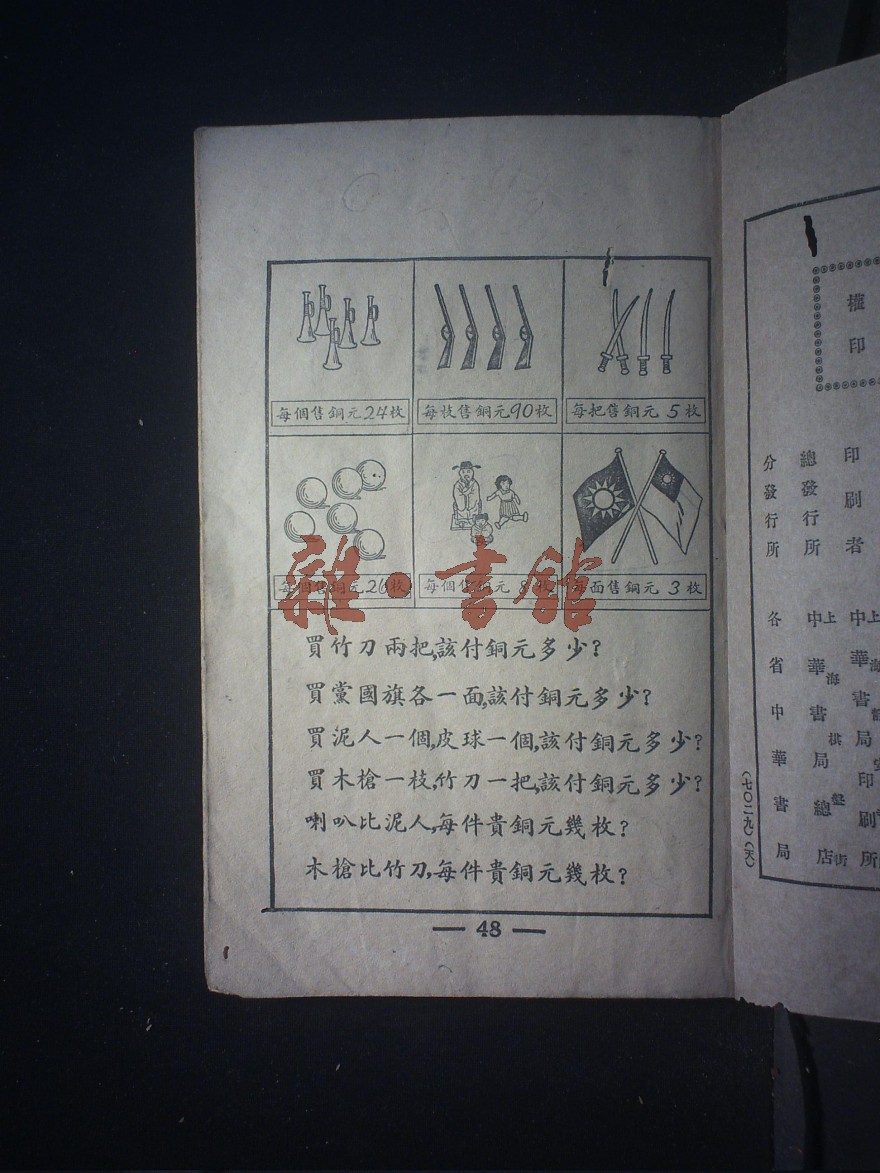 每個售銅元24枚
每枝售銅元90枚
每把售銅元 5枚
每個售銅元26枚
每個售銅元 8枚
每面售銅元 3枚
雜·書館
買竹刀兩把,該付銅元多少?
買黨國旗各一面,該付銅元多少?
買泥人一個,皮球一個,該付銅元多少?
買木槍一枝,竹刀一把,該付銅元多少?
喇叭比泥人,每件貴銅元幾枚?
木槍比竹刀,每件貴銅元幾枚?
— 48 —
權
印
印刷者
總發行所
分發行所
上海
中華書局印刷所
上海棋盤街
中華書局總店
各省中華書局
(七〇二九)(天)